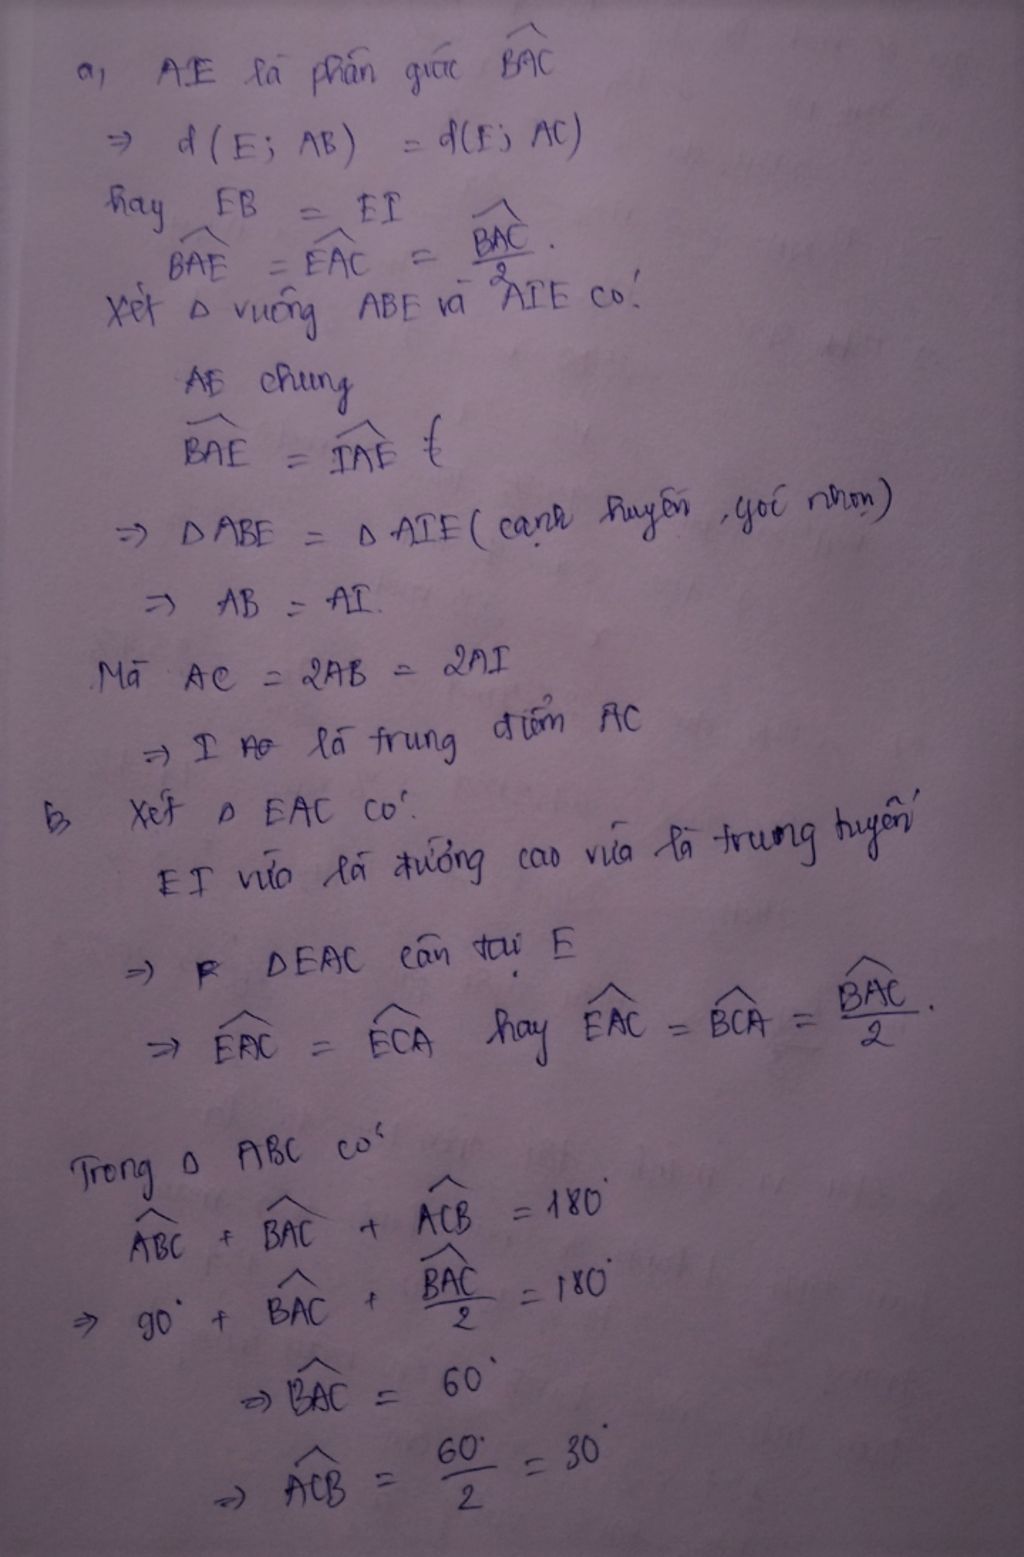 a, AE là phân giác \widehat{BAC}
⇒ d(E; AB) = d(E; AC)
hay EB = EI
\widehat{BAE} = \widehat{EAC} = \frac{\widehat{BAC}}{2}.
Xét Δ vuông ABE và AIE có:
AE chung
\widehat{BAE} = \widehat{IAE}
⇒ Δ ABE = Δ AIE (cạnh huyền, góc nhọn)
⇒ AB = AI.
Mà AC = 2AB = 2AI
⇒ I là trung điểm AC
b, Xét Δ EAC có:
EI vừa là đường cao vừa là trung tuyến
⇒ Δ EAC cân tại E
⇒ \widehat{EAC} = \widehat{ECA} hay \widehat{EAC} = \widehat{BCA} = \frac{\widehat{BAC}}{2}.
Trong Δ ABC có
\widehat{ABC} + \widehat{BAC} + \widehat{ACB} = 180°
⇒ 90° + \widehat{BAC} + \frac{\widehat{BAC}}{2} = 180°
⇒ \widehat{BAC} = 60°
⇒ \widehat{ACB} = \frac{60°}{2} = 30°